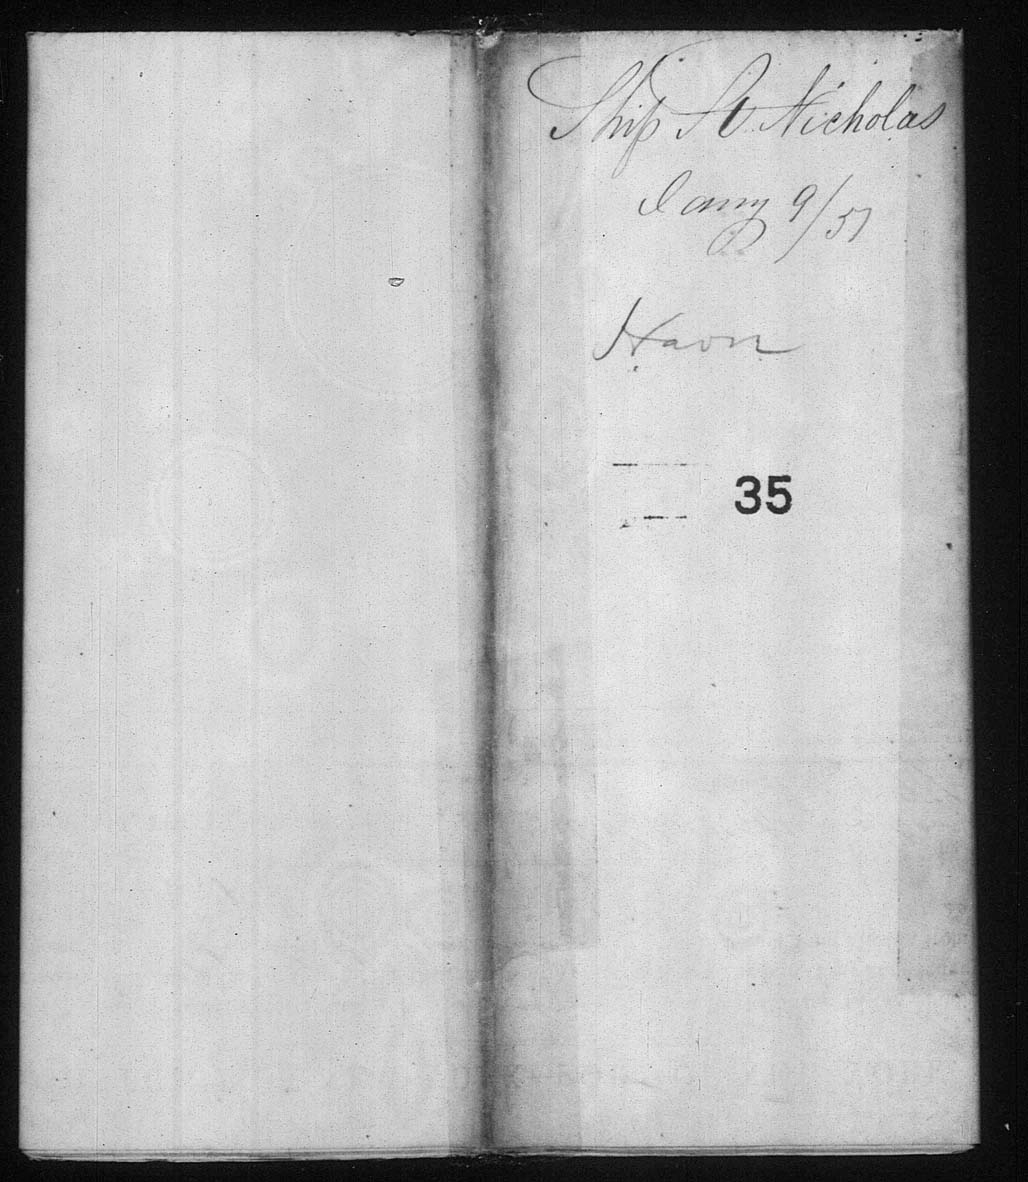 Ship St Nicholas
Jany 9/51
Havre
35